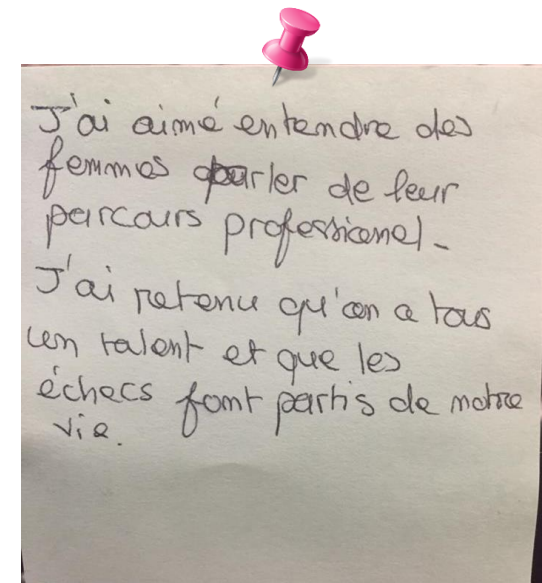 J'ai aimé entendre des
femmes parler de leur
parcours professionel.
J'ai retenu qu'on a tous
un talent et que les
échecs font partis de notre
vie.